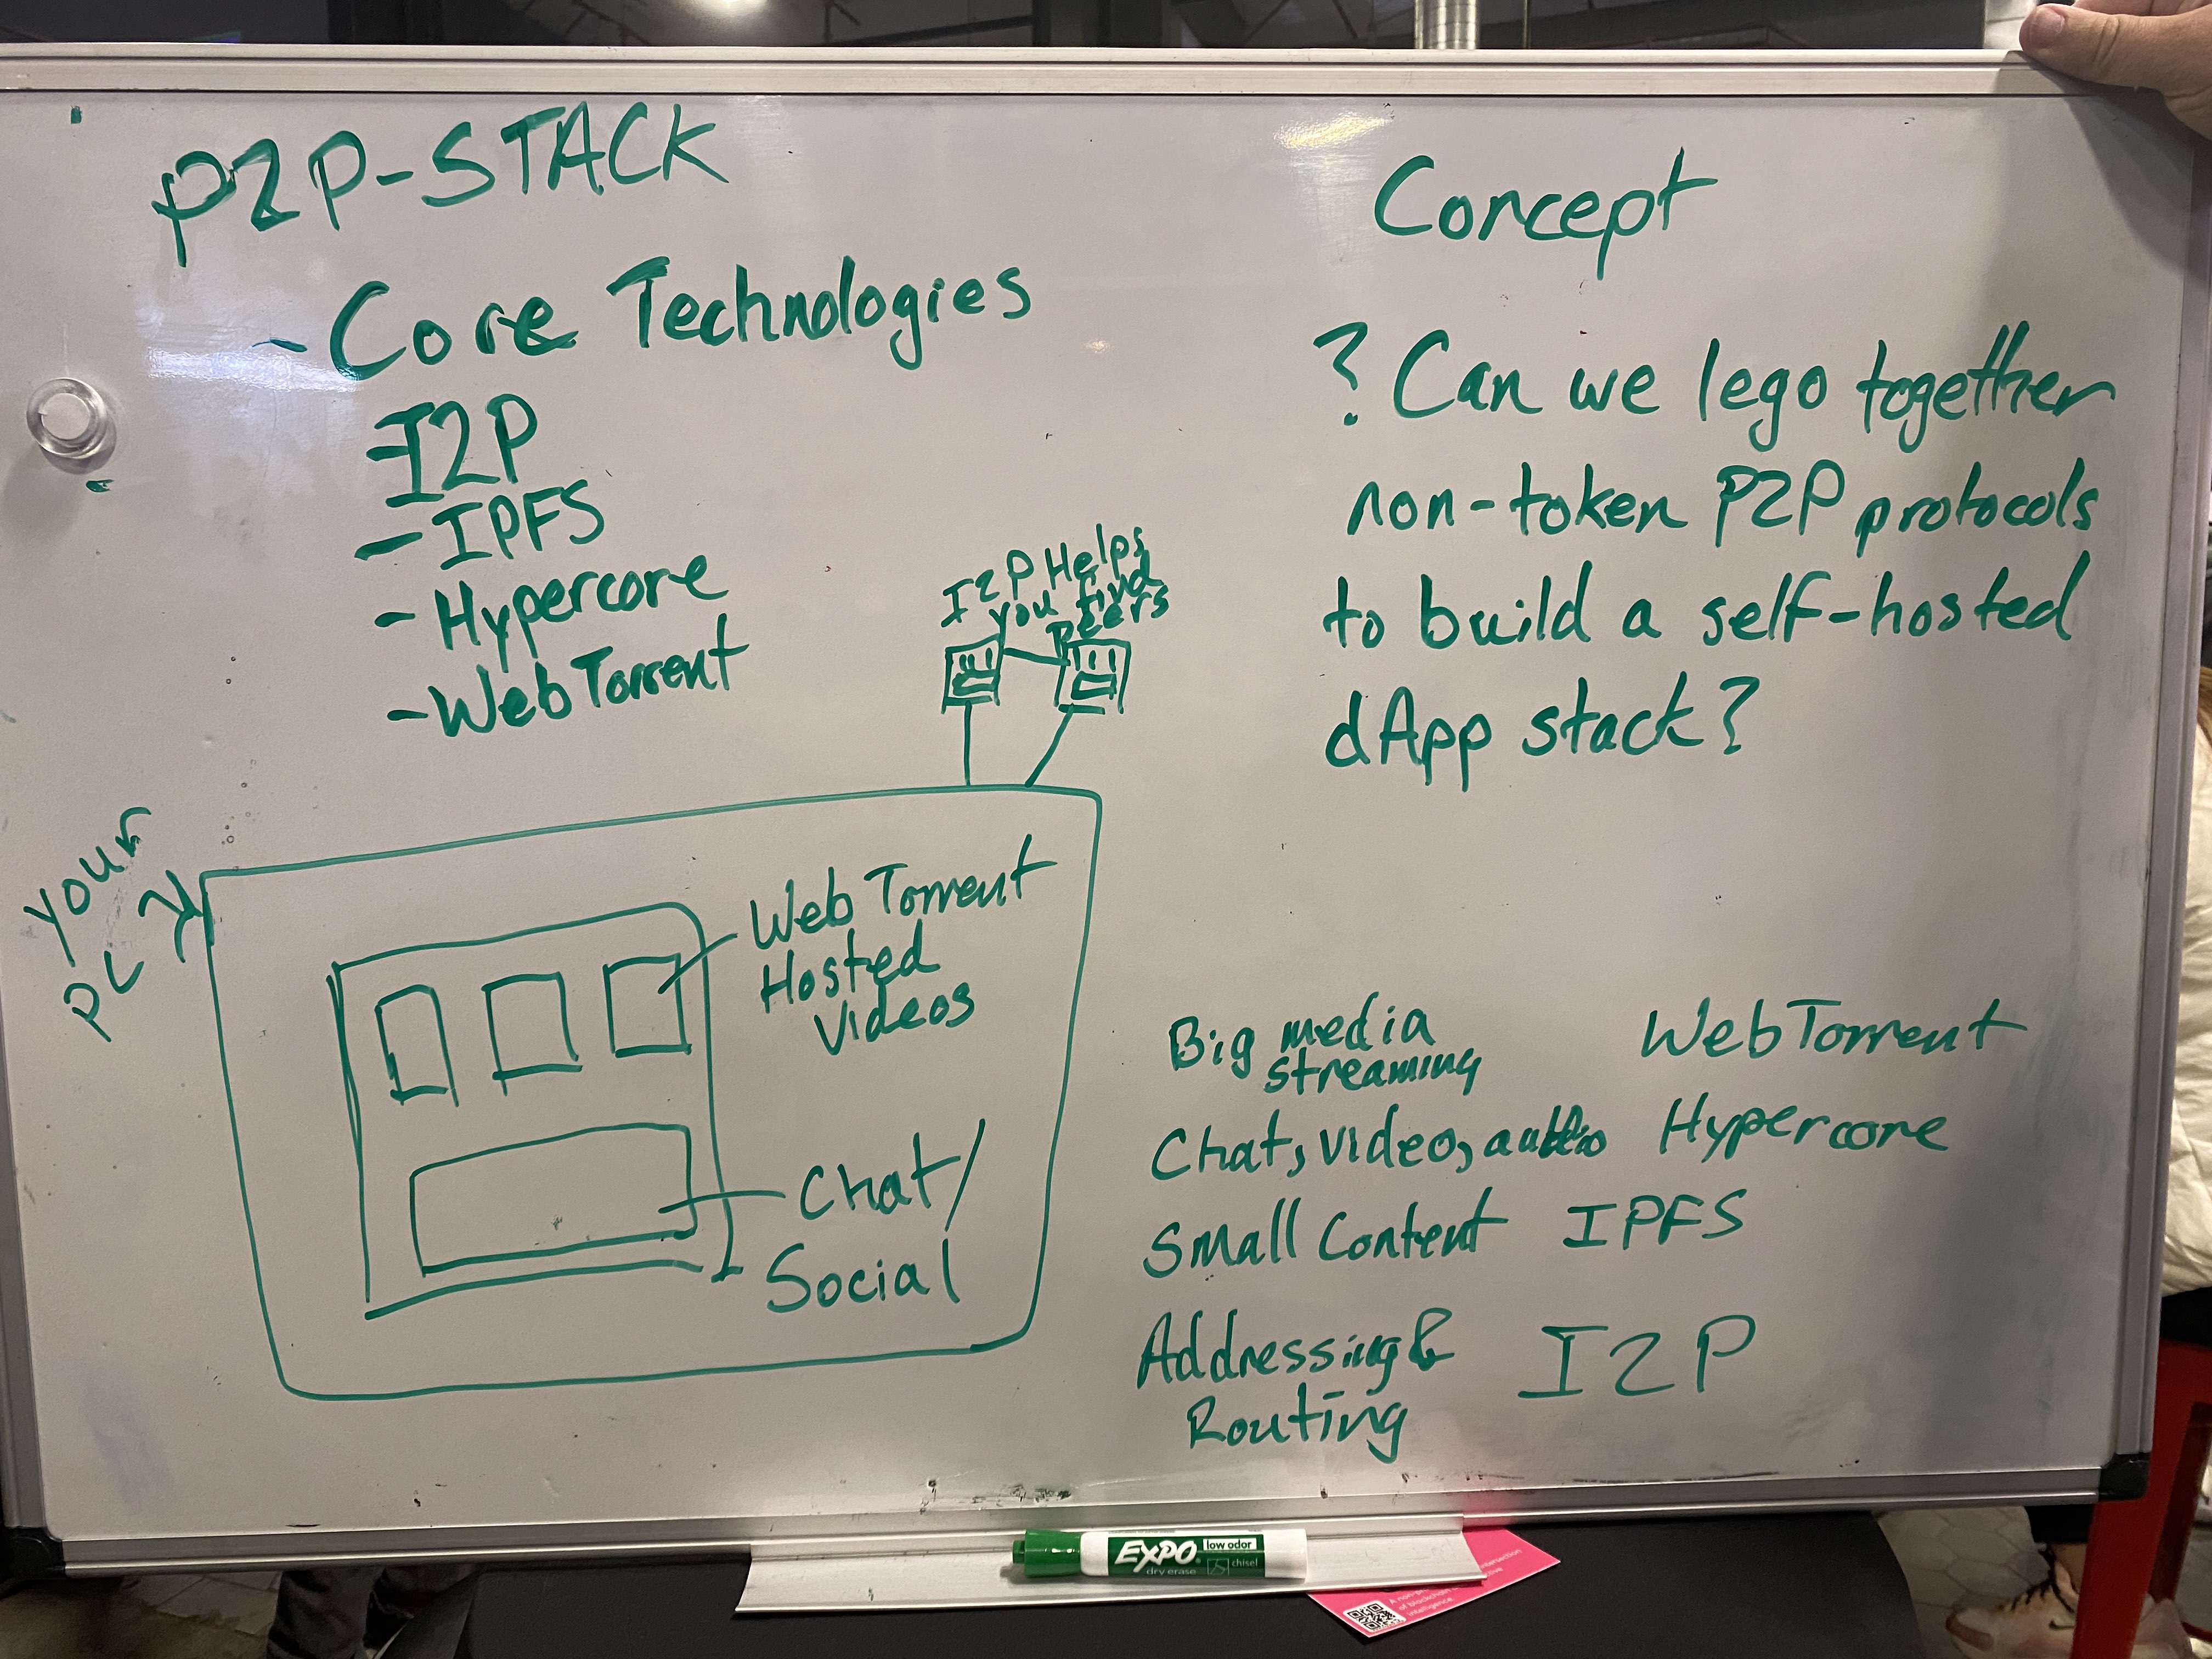 P2P-STACK
- Core Technologies
- I2P
- IPFS
- Hypercore
- WebTorrent
I2P Helps
you find
peers
your
PC
WebTorrent
Hosted
Videos
Chat/
Social
Concept
? Can we lego together
non-token P2P protocols
to build a self-hosted
dApp stack?
Big media
streaming
WebTorrent
Chat, video, audio Hypercore
Small Content IPFS
Addressing &
Routing
I2P
EXPO
low odor
chisel
dry erase
intersection
of blockchain
intelligence